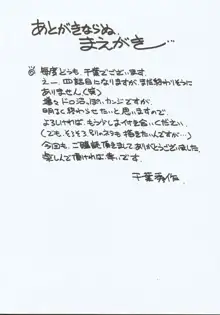 あとがきならぬ
まえがき…
毎度どうも、千葉でございます。
えー、四話目になりますが、まだ終わりそうに
ありません(笑)
ドロ沼っぽいカンジですが
明るく終わらせたいと思いますので
よろしければ、もう少しおつき合いください
(でも、そろそろ別のネタも描きたいんですが…)
今回も、ご購読頂きましてありがとうございました。
楽しんで頂ければ幸いです。
千葉秀作